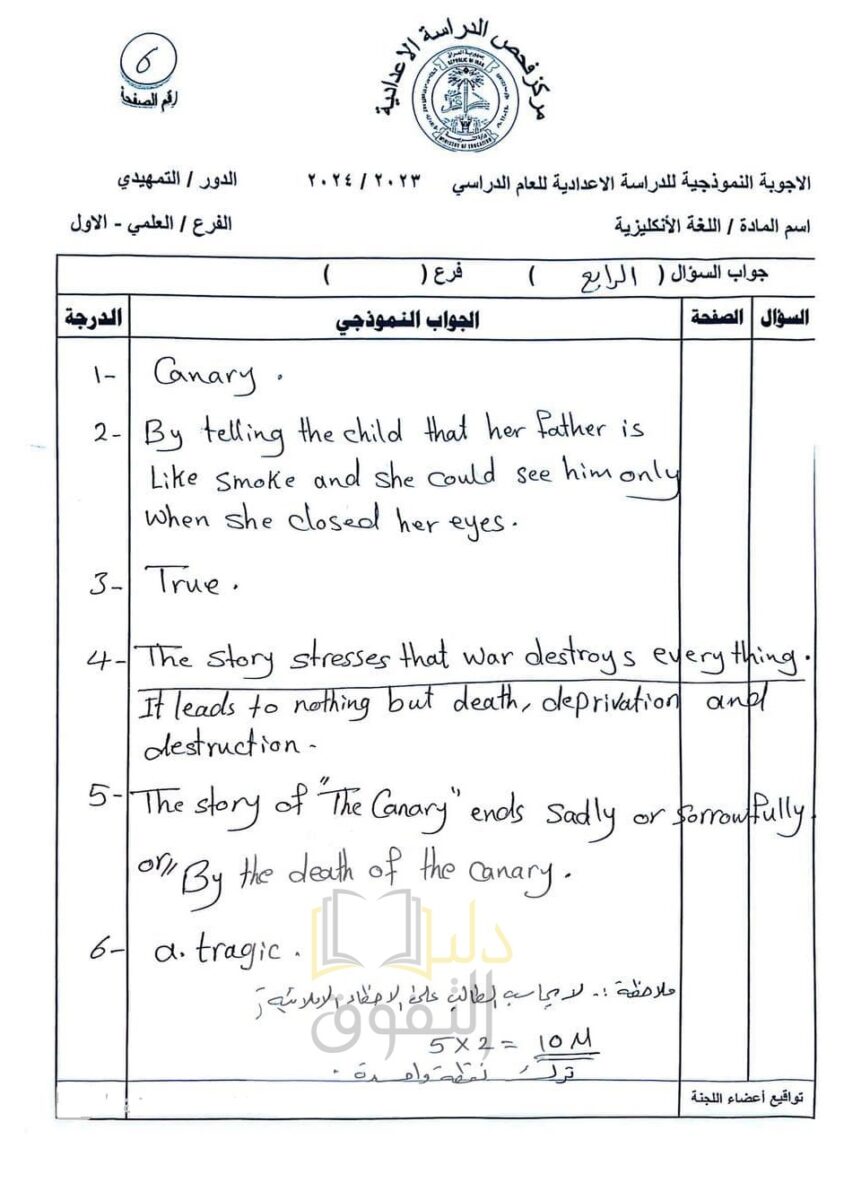 مركز فحص الدراسة الاعدادية
REPUBLIC OF IRAQ
MINISTRY OF EDUCATION
6
رقم الصفحة
الاجوبة النموذجية للدراسة الاعدادية للعام الدراسي ٢٠٢٣ / ٢٠٢٤ الدور / التمهيدي
اسم المادة / اللغة الأنكليزية الفرع / العلمي - الاول
جواب السؤال ( الرابع ) فرع ( )
السؤال الصفحة الجواب النموذجي الدرجة
1- Canary .
2- By telling the child that her father is
Like smoke and she could see him only
when she closed her eyes.
3- True .
4- The story stresses that war destroys everything.
It leads to nothing but death, deprivation and
destruction.
5- The story of "The Canary" ends sadly or sorrowfully.
or// By the death of the canary .
6- a. tragic .
دليل
التفوق
ملاحظة :. لا يحاسب الطالب على الاخطاء الاملائية
5 x 2 = 10 M
ترك نقطة واحدة .
تواقيع أعضاء اللجنة